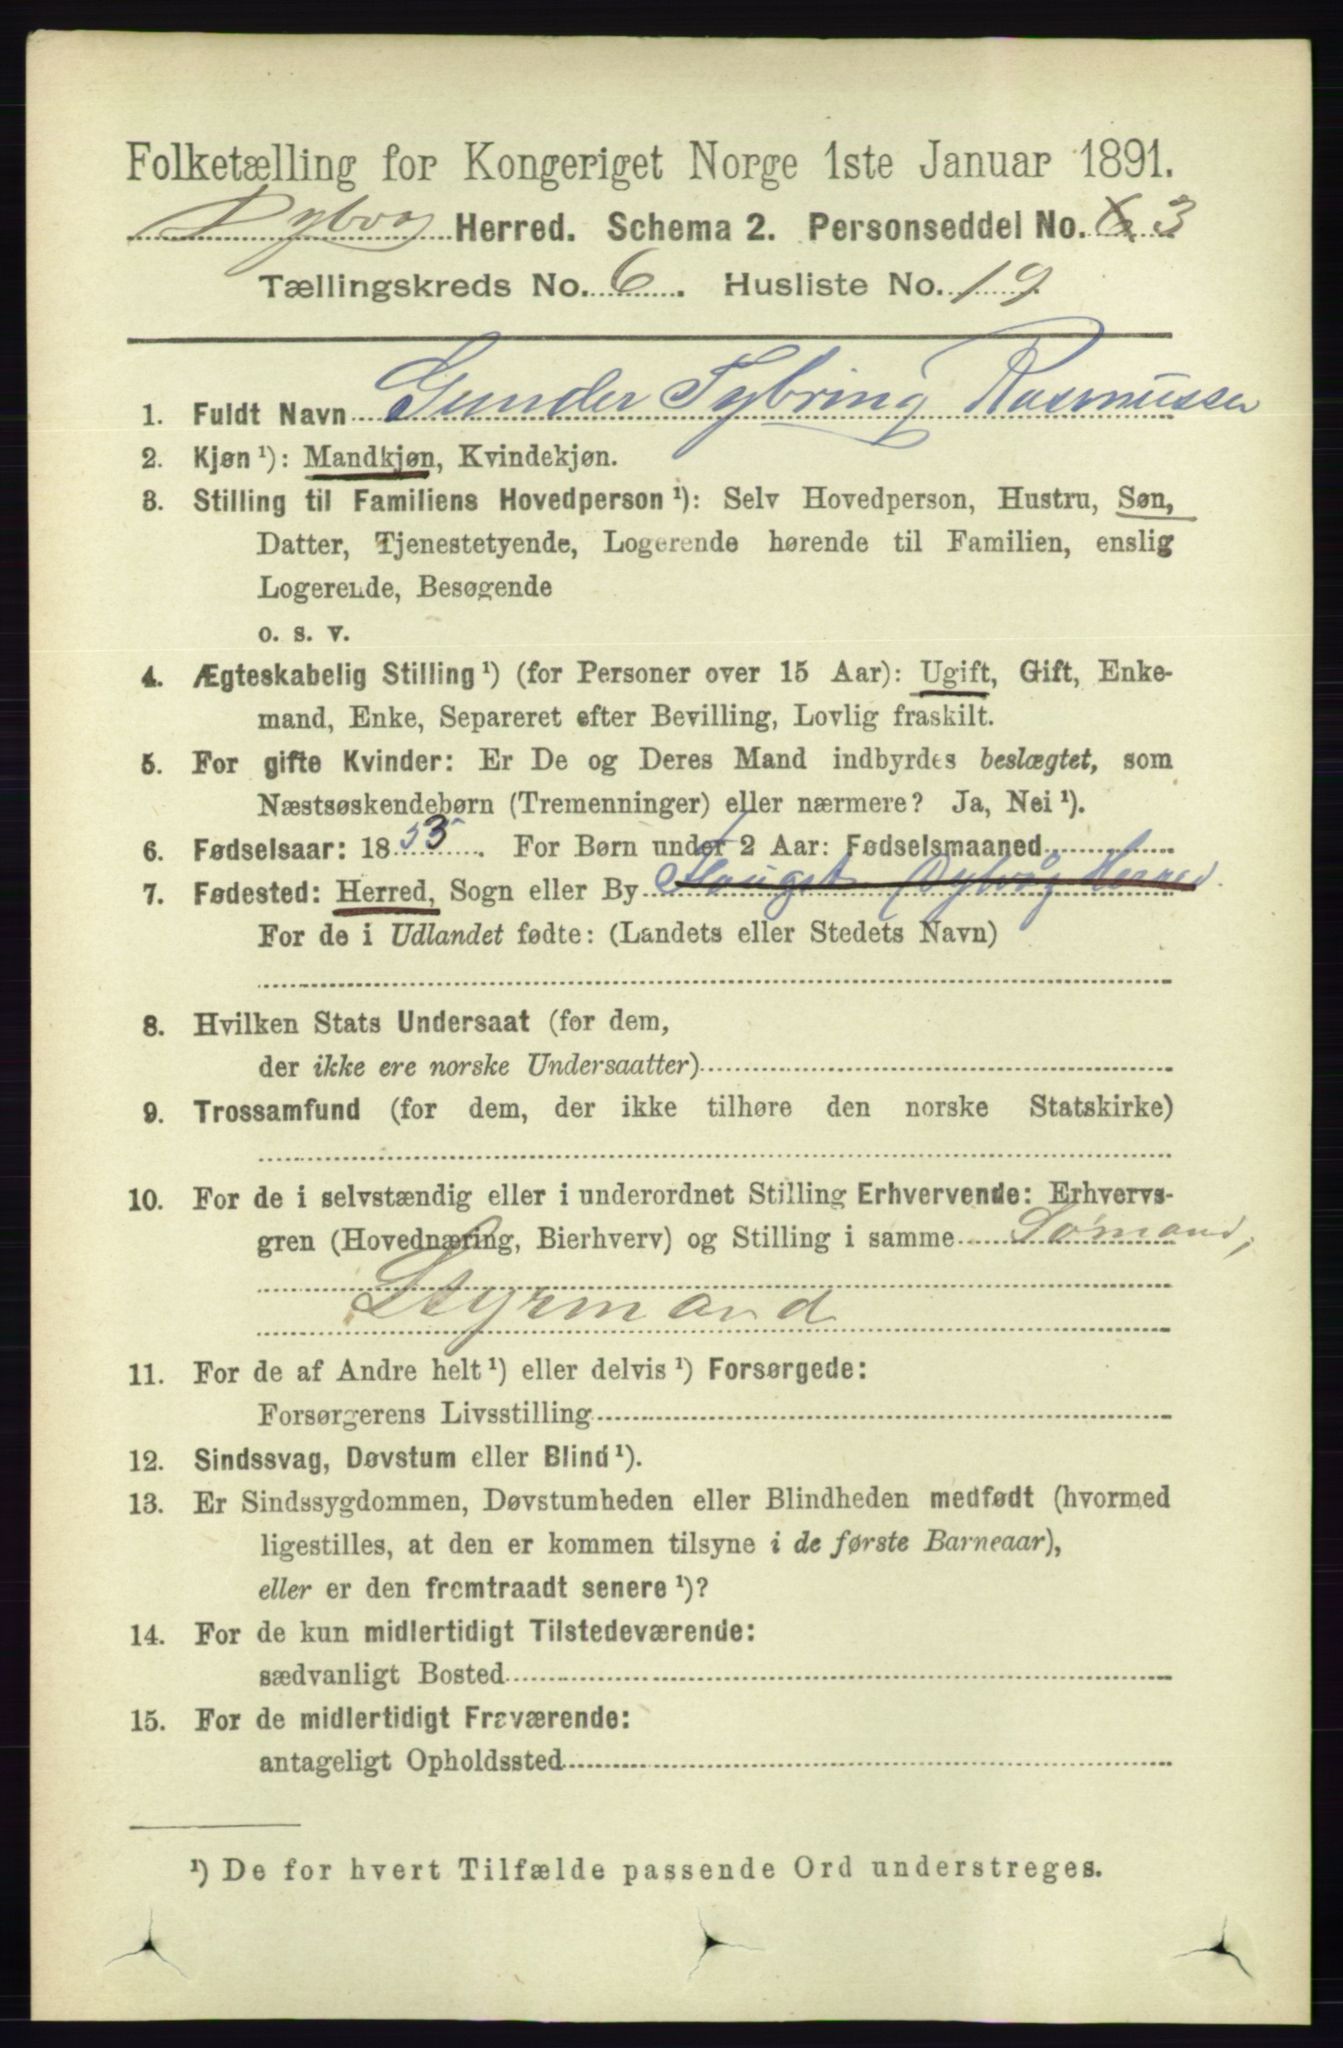 Folketælling for Kongeriget Norge 1ste Januar 1891.
Dybvåg Herred. Schema 2. Personseddel No. 3
Tællingskreds No. 6. Husliste No. 19
1. Fuldt Navn Gunder Sybring Rasmussen
2. Kjøn ¹): Mandkjøn, Kvindekjøn.
3. Stilling til Familiens Hovedperson ¹): Selv Hovedperson, Hustru, Søn,
Datter, Tjenestetyende, Logerende hørende til Familien, enslig
Logerende, Besøgende
o. s. v.
4. Ægteskabelig Stilling ¹) (for Personer over 15 Aar): Ugift, Gift, Enke-
mand, Enke, Separeret efter Bevilling, Lovlig fraskilt.
5. For gifte Kvinder: Er De og Deres Mand indbyrdes beslægtet, som
Næstsøskendebørn (Tremenninger) eller nærmere? Ja, Nei ¹).
6. Fødselsaar: 18 . For Børn under 2 Aar: Fødselsmaaned
7. Fødested: Herred, Sogn eller By Dybvåg Herred.
For de i Udlandet fødte: (Landets eller Stedets Navn)
8. Hvilken Stats Undersaat (for dem,
der ikke ere norske Undersaatter)
9. Trossamfund (for dem, der ikke tilhøre den norske Statskirke)
10. For de i selvstændig eller i underordnet Stilling Erhvervende: Erhvervs-
gren (Hovednæring, Bierhverv) og Stilling i samme Sømand,
Styrmand
11. For de af Andre helt ¹) eller delvis ¹) Forsørgede:
Forsørgerens Livsstilling
12. Sindssvag, Døvstum eller Blind ¹).
13. Er Sindssygdommen, Døvstumheden eller Blindheden medfødt (hvormed
ligestilles, at den er kommen tilsyne i de første Barneaar),
eller er den fremtraadt senere ¹)?
14. For de kun midlertidigt Tilstedeværende:
sædvanligt Bosted
15. For de midlertidigt Fraværende:
antageligt Opholdssted
¹) De for hvert Tilfælde passende Ord understreges.